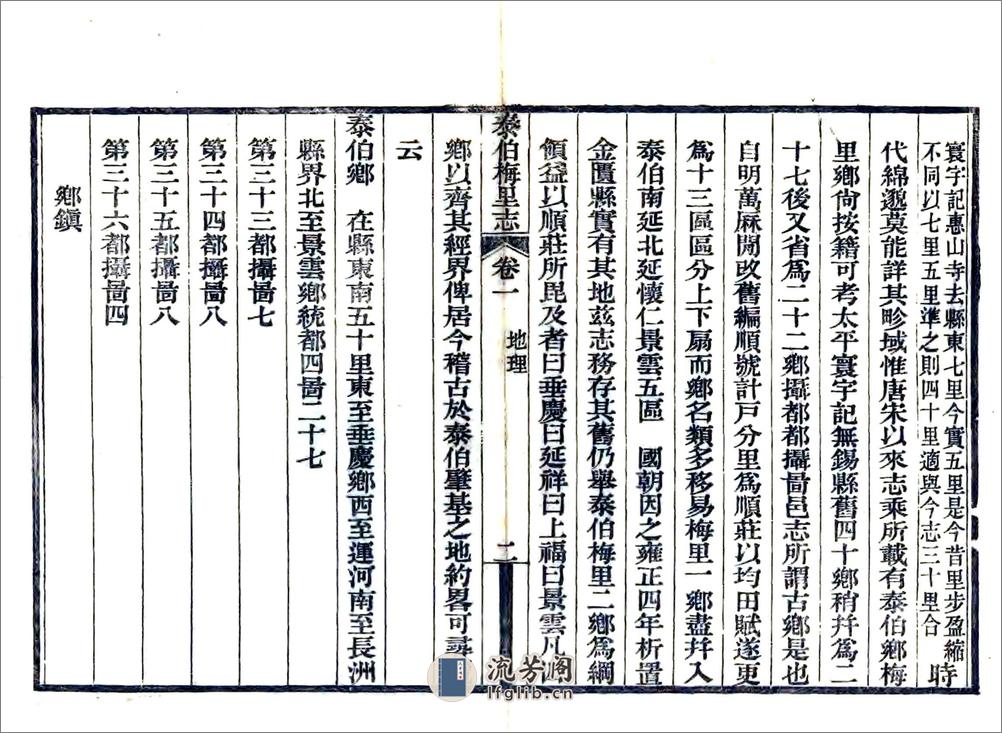 寰宇記惠山寺去縣東七里今實五里是今昔里步盈縮
不同以七里五里準之則四十里適與今志三十里合
時
代綿邈莫能詳其畛域惟唐宋以來志乘所載有泰伯鄉梅
里鄉尙按籍可考太平寰宇記無錫縣舊四十鄉稍幷爲二
十七後又省爲二十二鄉攝都都攝啚邑志所謂古鄉是也
自明萬厤閒改舊編順號計戸分里爲順莊以均田賦遂更
爲十三區區分上下扇而鄉名類多移易梅里一鄉盡幷入
泰伯南延北延懷仁景雲五區　國朝因之雍正四年析置
金匱縣實有其地兹志務存其舊仍舉泰伯梅里二鄉爲綱
領益以順莊所毘及者曰垂慶曰延祥曰上福曰景雲凡
泰伯梅里志　卷一　地理　二
鄉以齊其經界俾居今稽古於泰伯肇基之地約畧可尋
云
泰伯鄉　在縣東南五十里東至垂慶鄉西至運河南至長洲
縣界北至景雲鄉統都四啚二十七
第三十三都攝啚七
第三十四都攝啚八
第三十五都攝啚八
第三十六都攝啚四
鄉鎭
流芳阁
lfglib.cn